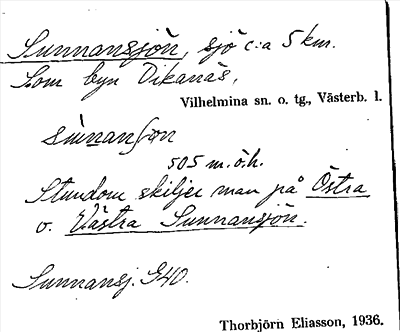 Sunnansjön, sjö c:a 5 km.
S.om byn Dikanäs,
Vilhelmina sn. o. tg., Västerb. l.
505 m.ö.h.
Stundom skiljer man på Östra
o. Västra Sunnansjön.
Sunnansj. G40.
Thorbjörn Eliasson, 1936.